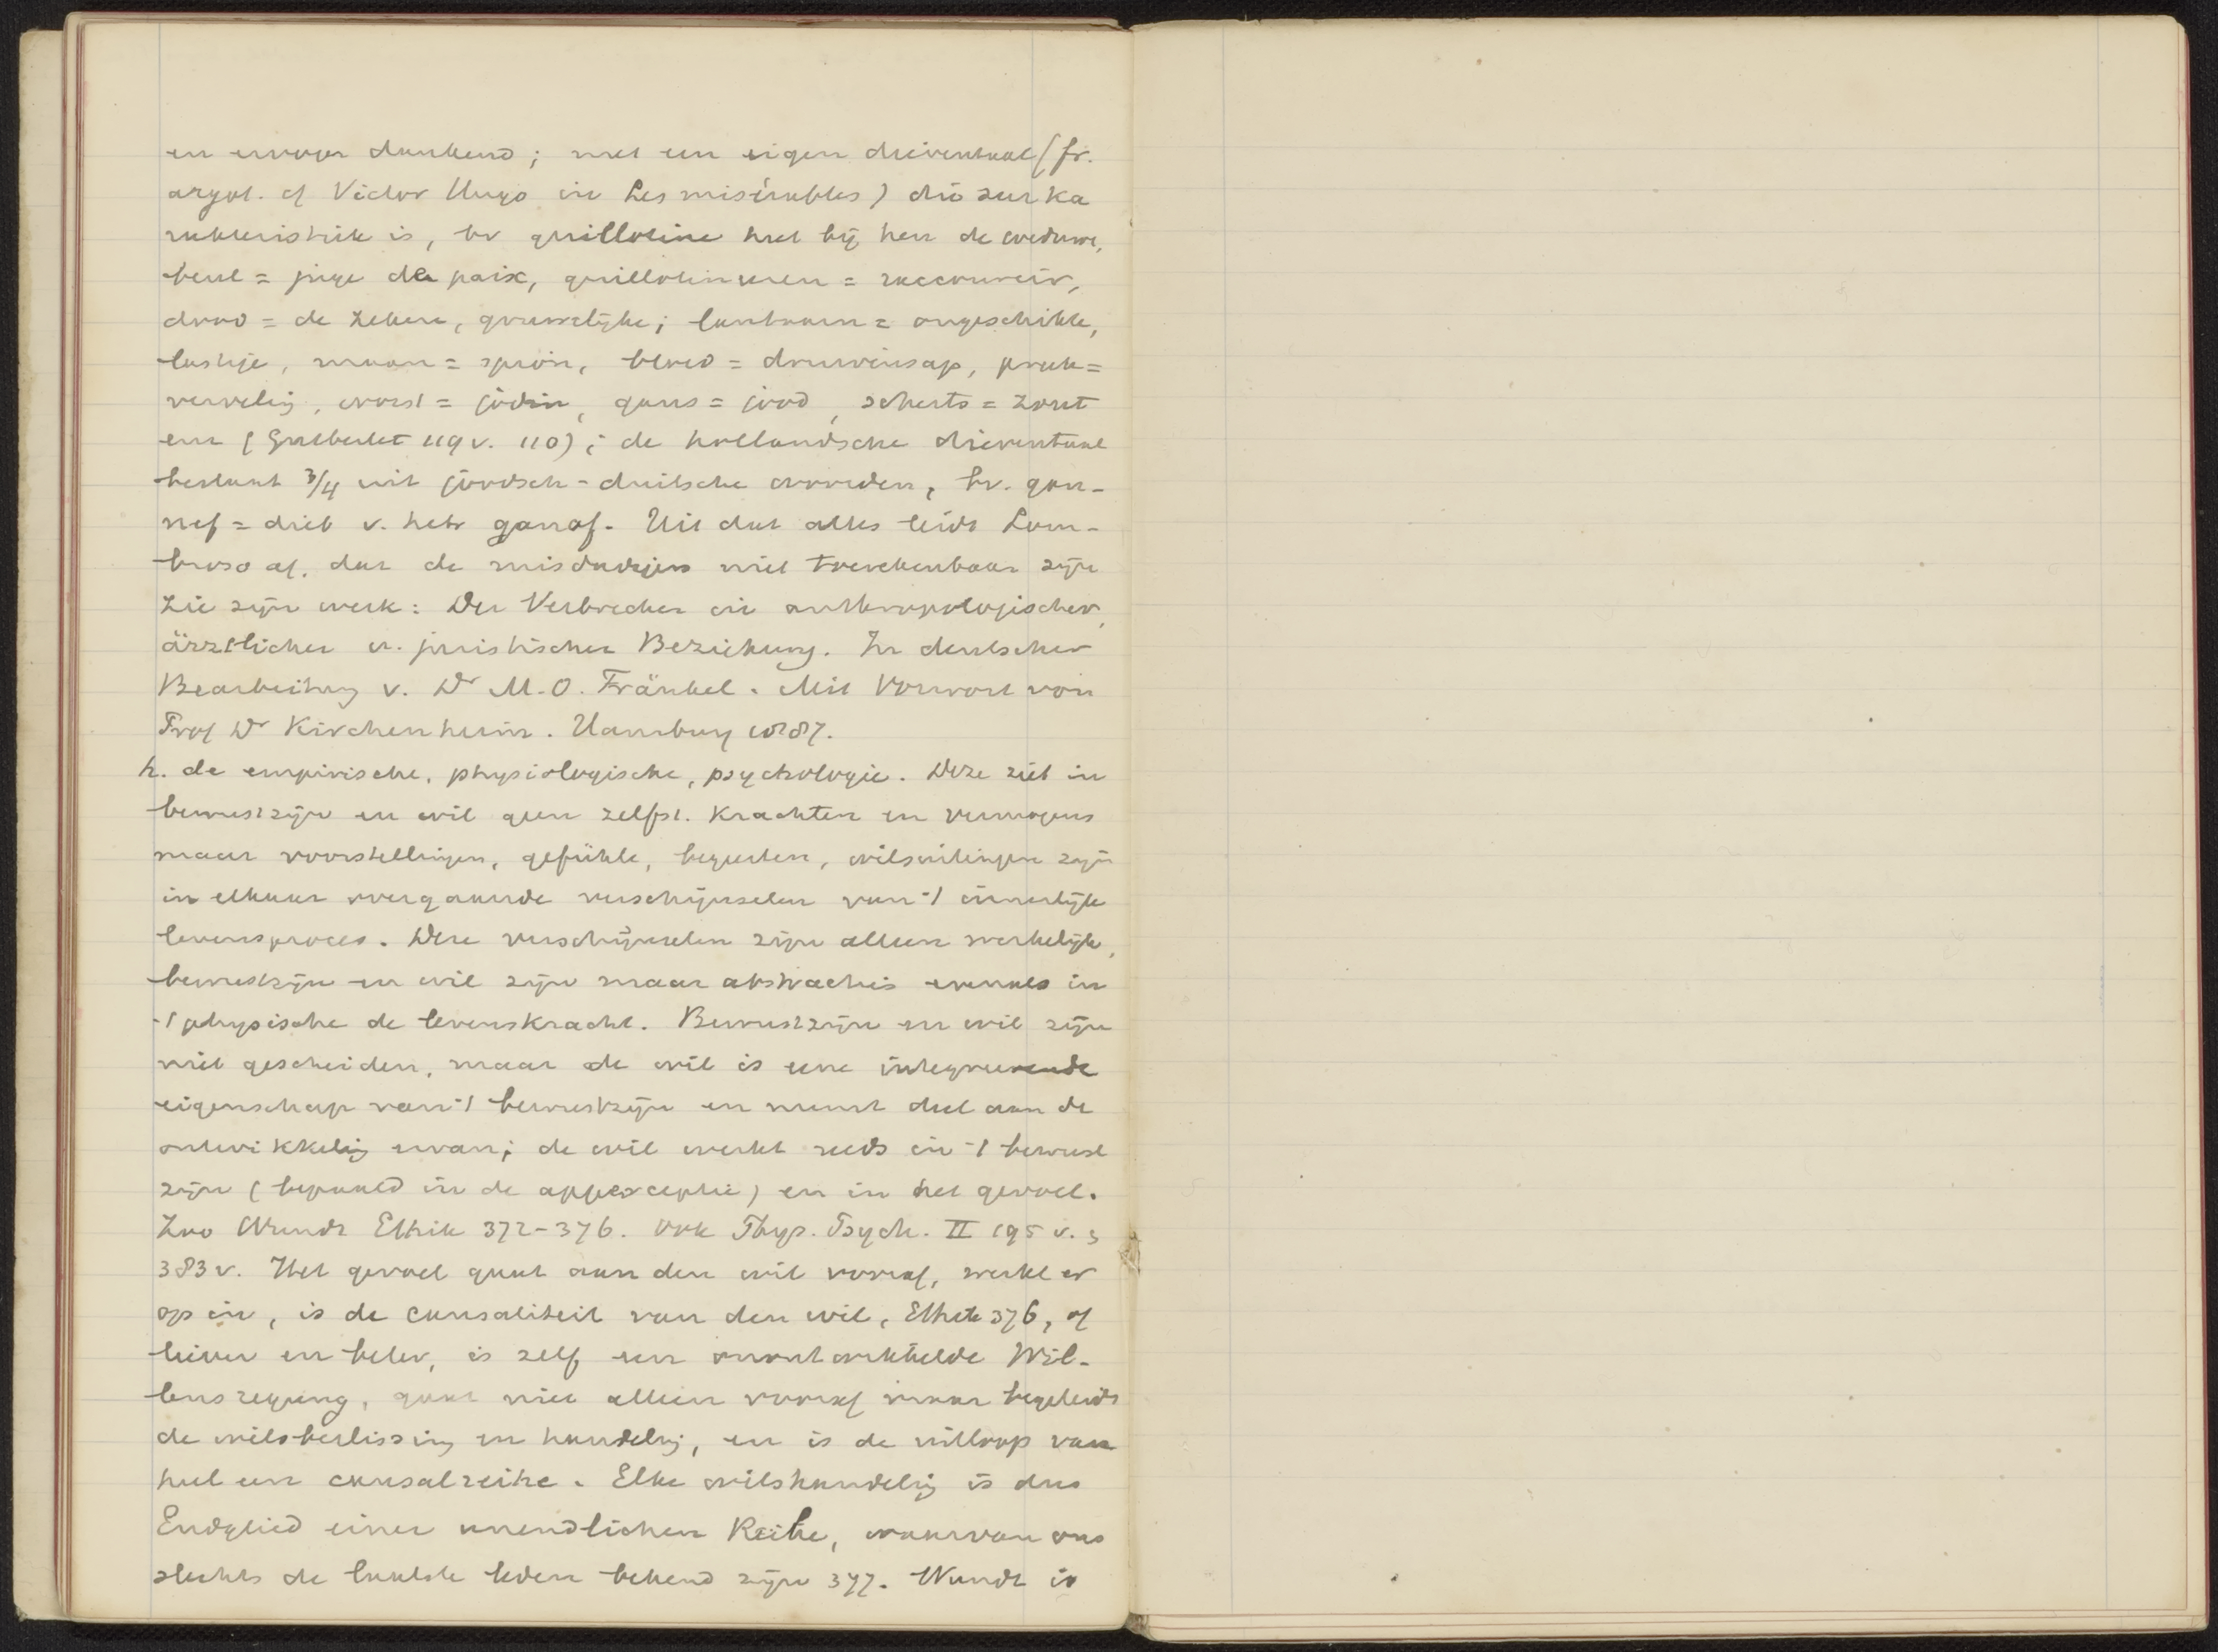 en ervoor dankend; met een eigen dieventaal (fr.
argot. cf Victor Hugo in Les misérables) die zeer ka
rakteristiek is, bv guillotine heet bij hen de weduwe,
beul = juge de paix, guillotineeren = raccourcir,
dood = de zekere, gruwelijke; lantaarn = ongeschikte,
lastige, maan = spion, bloed = druivensap, preek =
verveling, worst = jodin, gans = jood, scherts = zout
enz ( 119 v. 110); de hollandsche dieventaal
bestaat 3/4 uit joodsch-duitsche woorden, bv. gan-
nef = dieb v. hebr gannaf. Uit dat alles leidt Lom-
broso af, dat de misdadigers niet toerekenbaar zijn
Zie zijn werk: Der Verbrecher in anthropologischer,
ärztlicher u. juristischer Beziehung. In deutscher
Bearbeitung v. Dr M.O. Fränkel. Mit Vorwort von
Prof Dr Kirchenheim. Hamburg 1887.
h. de empirische, physiologische, psychologie. Deze ziet in
bewustzijn en wil geen zelfst. Krachten en vermogens
maar voorstellingen, gefühle, begeerten, wilsuitingen zijn
in elkaar overgaande verschijnselen van 't innerlijk
levensproces. Deze verschijnselen zijn alleen werkelijk,
bewustzijn en wil zijn maar abstracties evenals in
't physische de levenskracht. Bewustzijn en wil zijn
niet gescheiden, maar de wil is eene integreerende
eigenschap van 't bewustzijn en neemt deel aan de
ontwikkeling ervan; de wil werkt reeds in 't bewust
zijn (bepaald in de apperceptie) en in het gevoel.
Zoo Wundt Ethik 372-376. ook Phys. Psych. II 195 v.
383 v. Het gevoel gaat aan den wil vooraf, werkt er
op in, is de causaliteit van den wil, Ethik 376, of
liever en beter, is zelf een onontwikkelde Wil-
lensregung, gaat niet alleen vooraf maar begeleidt
de wilsbeslissing en handeling, en is de uitloop van
heel een causalreihe. Elke wilshandeling is dus
Endglied einer unendlichen Reihe, waarvan ons
slechts de laatste leden bekend zijn 377. Wundt is